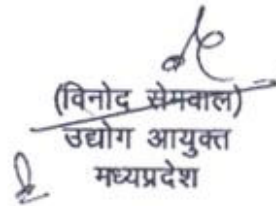 (विनोद सेमवाल)
उद्योग आयुक्त
मध्यप्रदेश